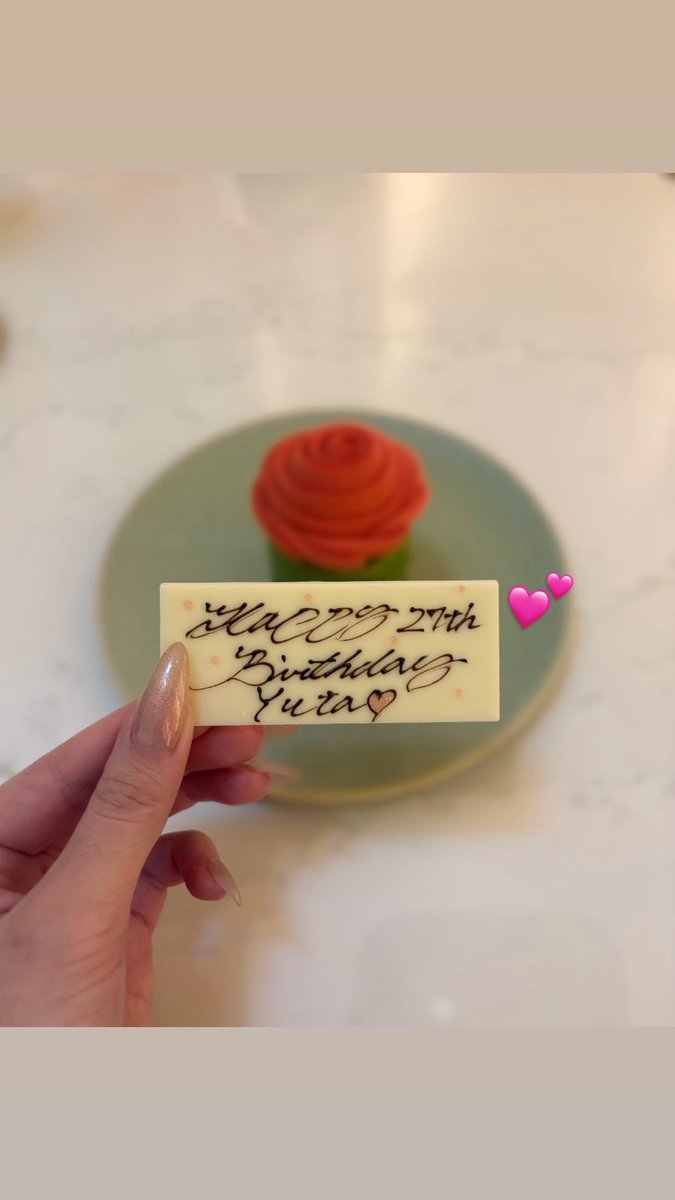 Happy 27th
Birthday
Yuta♡